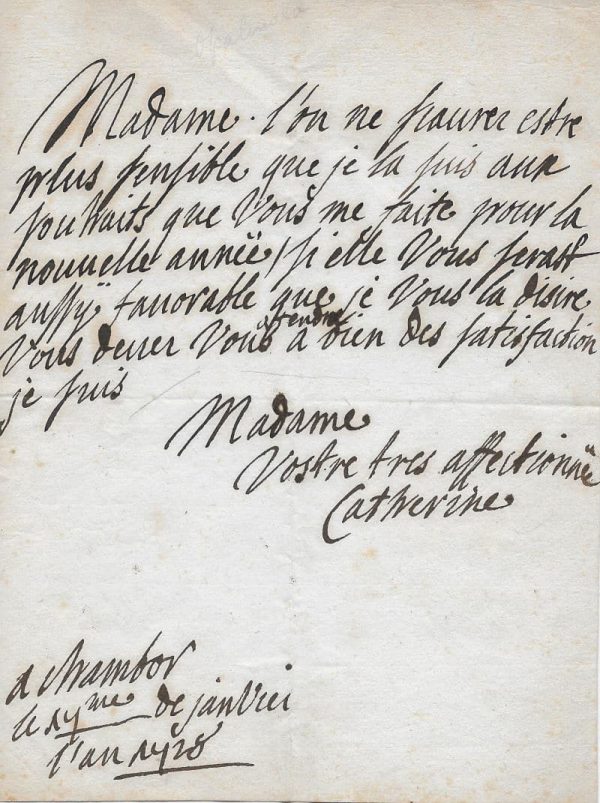 Madame. l'on ne scaurer estre
plus sensible que je la suis aux
souhaits que Vous me faite pour la
nouvelle anneë, si elle Vous serast
aussÿ favorable que je Vous la disire
Vous dever Vous attendre a bien des satisfaction
je suis
Madame
Vostre tres affectionneë
Catherine
a Chambor
le 17me de janvier
l'an 1728